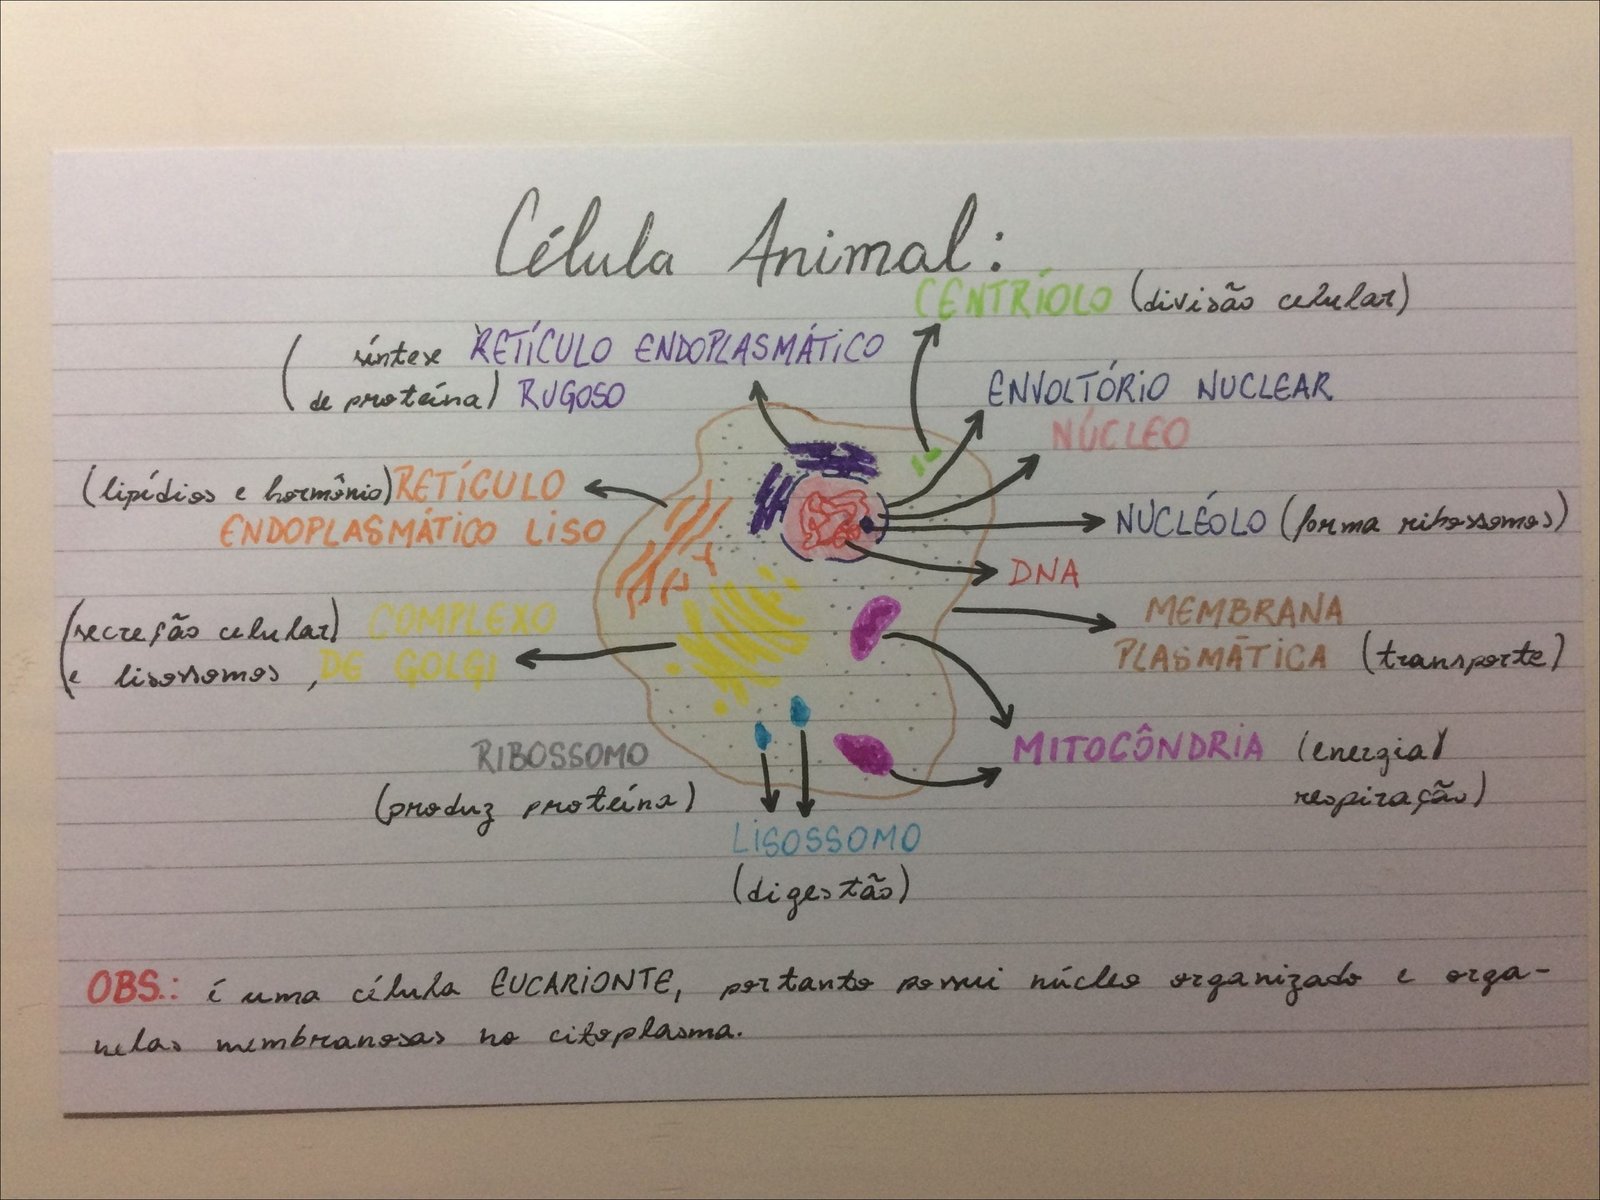 Célula Animal:
CENTRÍOLO (divisão celular)
(síntese RETÍCULO ENDOPLASMÁTICO
de proteína) RUGOSO
ENVOLTÓRIO NUCLEAR
NÚCLEO
(lipídios e hormônio) RETÍCULO
ENDOPLASMÁTICO LISO
NUCLÉOLO (forma ribossomos)
DNA
(secreção celular) COMPLEXO
e lisossomos, DE GOLGI
MEMBRANA
PLASMÁTICA (transporte)
RIBOSSOMO
(produz proteína)
MITOCÔNDRIA (energia/
respiração)
LISOSSOMO
(digestão)
OBS.: é uma célula EUCARIONTE, portanto possui núcleo organizado e orga-
nelas membranosas no citoplasma.